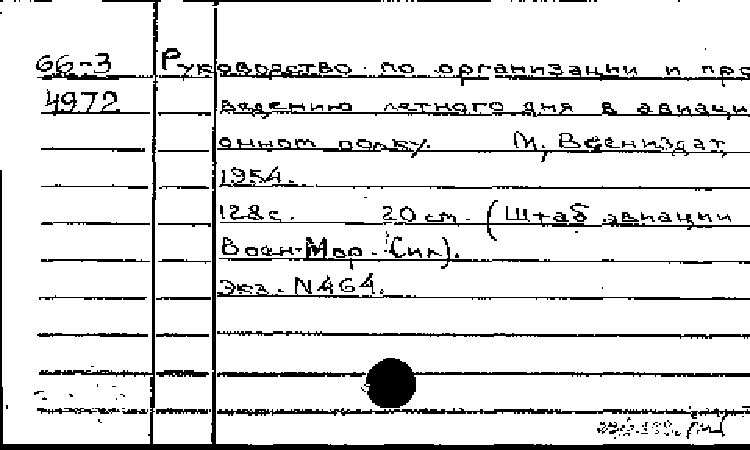 66-3 Руководство по организации и про
4972 ведению летного дня в авиаци
онном полку. М, Воениздат,
1954.
128с. 20 см. (Штаб авиации
Воен-Мор. Сил).
Экз. N464.